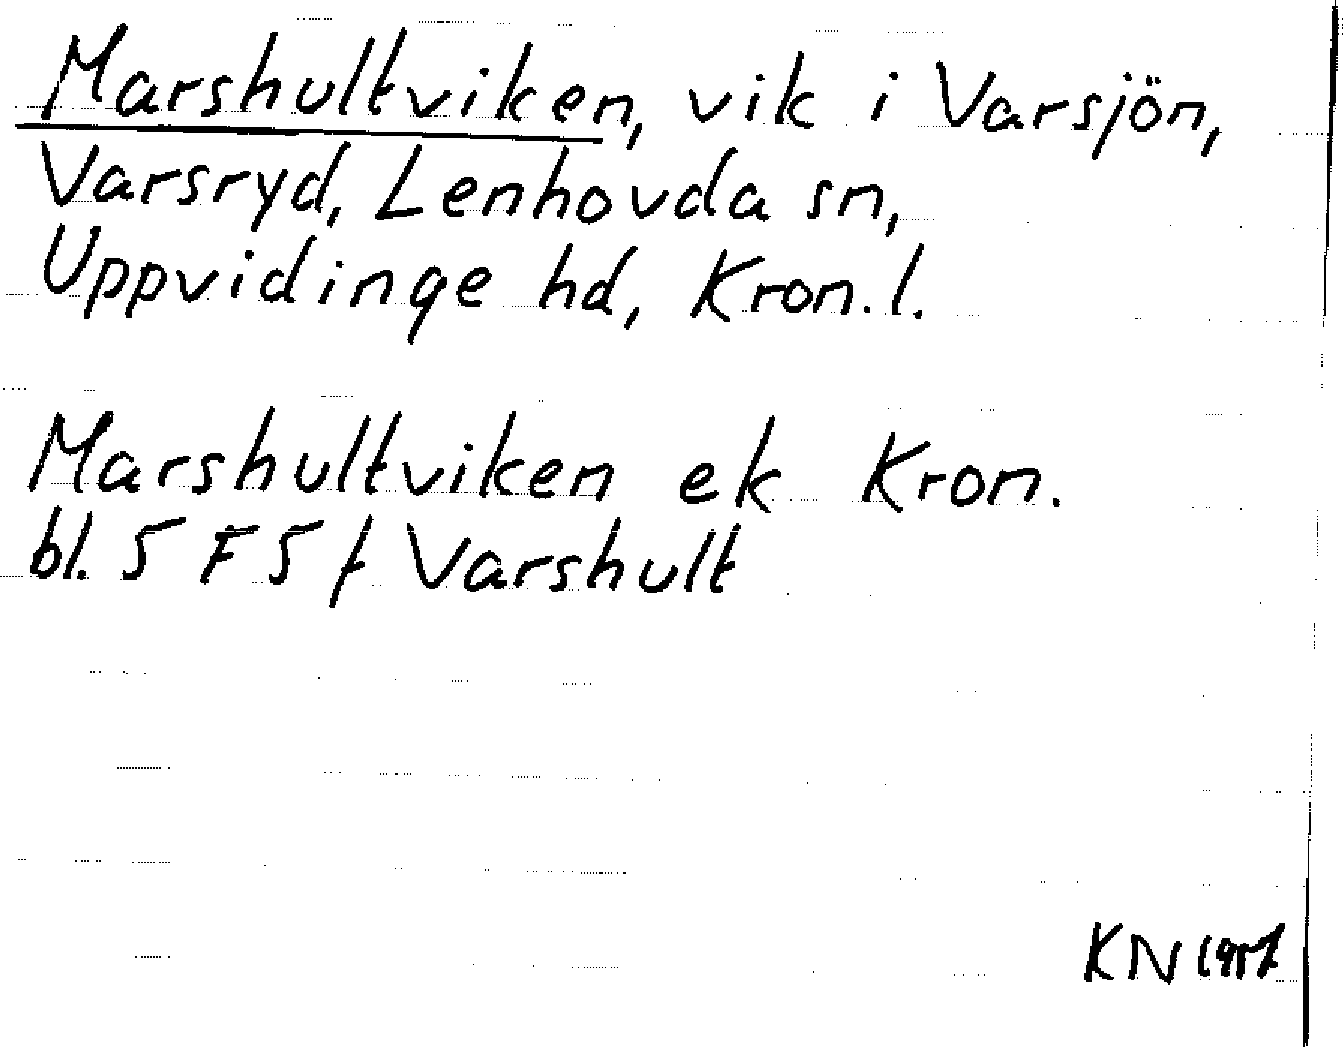 Marshultviken, vik i Varsjön,
Varsryd, Lenhovda sn,
Uppvidinge hd, Kron. l.
Marshultviken ek Kron.
bl. 5 F 5 f Varshult
KN